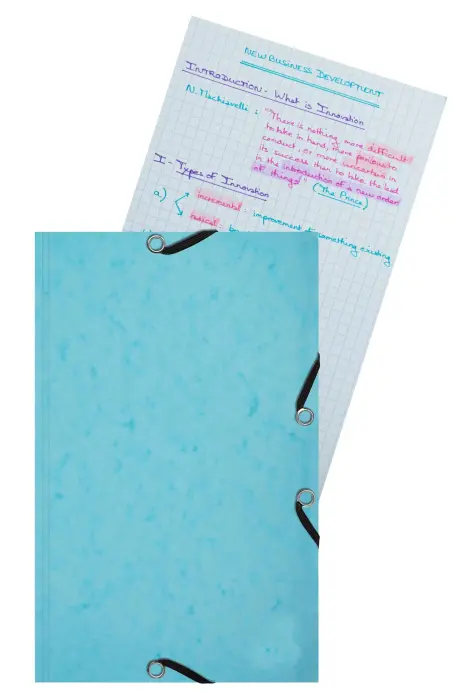 NEW BUSINESS DEVELOPMENT
INTRODUCTION - What is Innovation
N. Machiavelli :
"There is nothing more difficult
to take in hand, more perilous to
conduct, or more uncertain in
its success than to take the lead
in the introduction of a new order
of things"
(The Prince)
I - Types of Innovation
a)
incremental : improvement of something existing
radical :